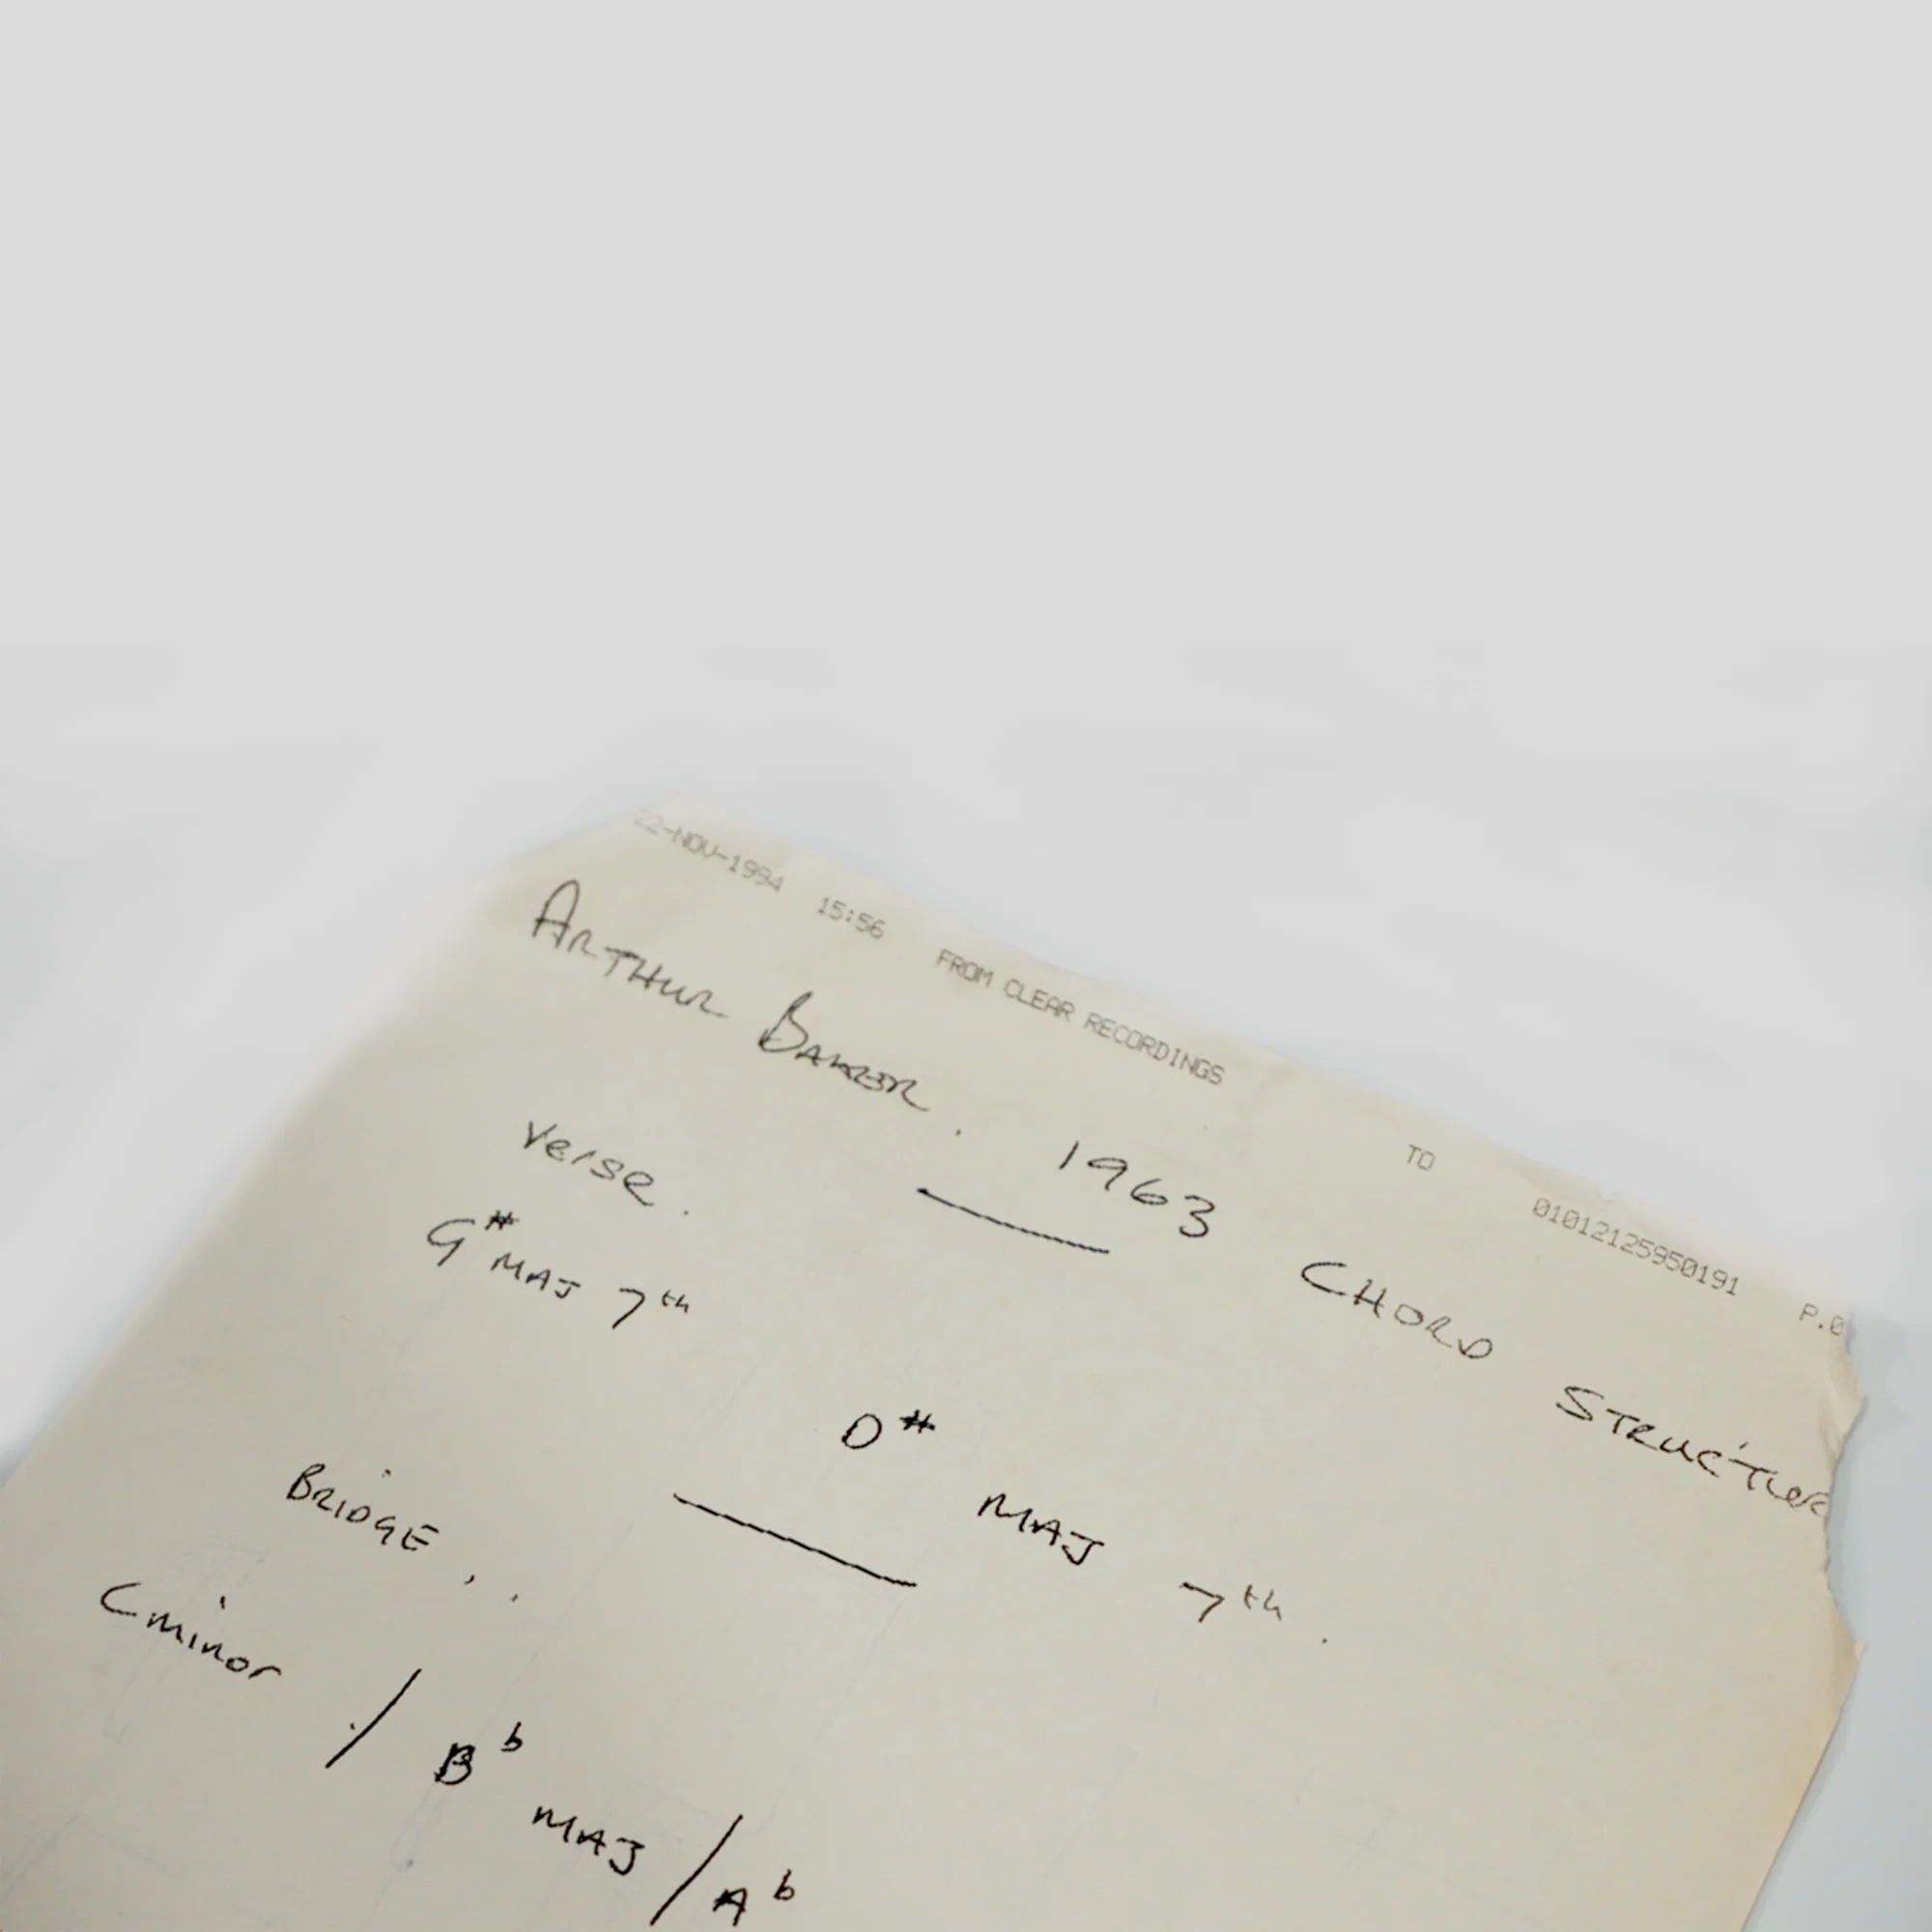 22-NOV-1994 15:56 FROM CLEAR RECORDINGS TO 01012125950191 P.0
ARTHUR BAKER. 1963 CHORD STRUCTURE
Verse.
G# MAJ 7th D# MAJ 7th.
BRIDGE..
Cminor / Bb MAJ / Ab